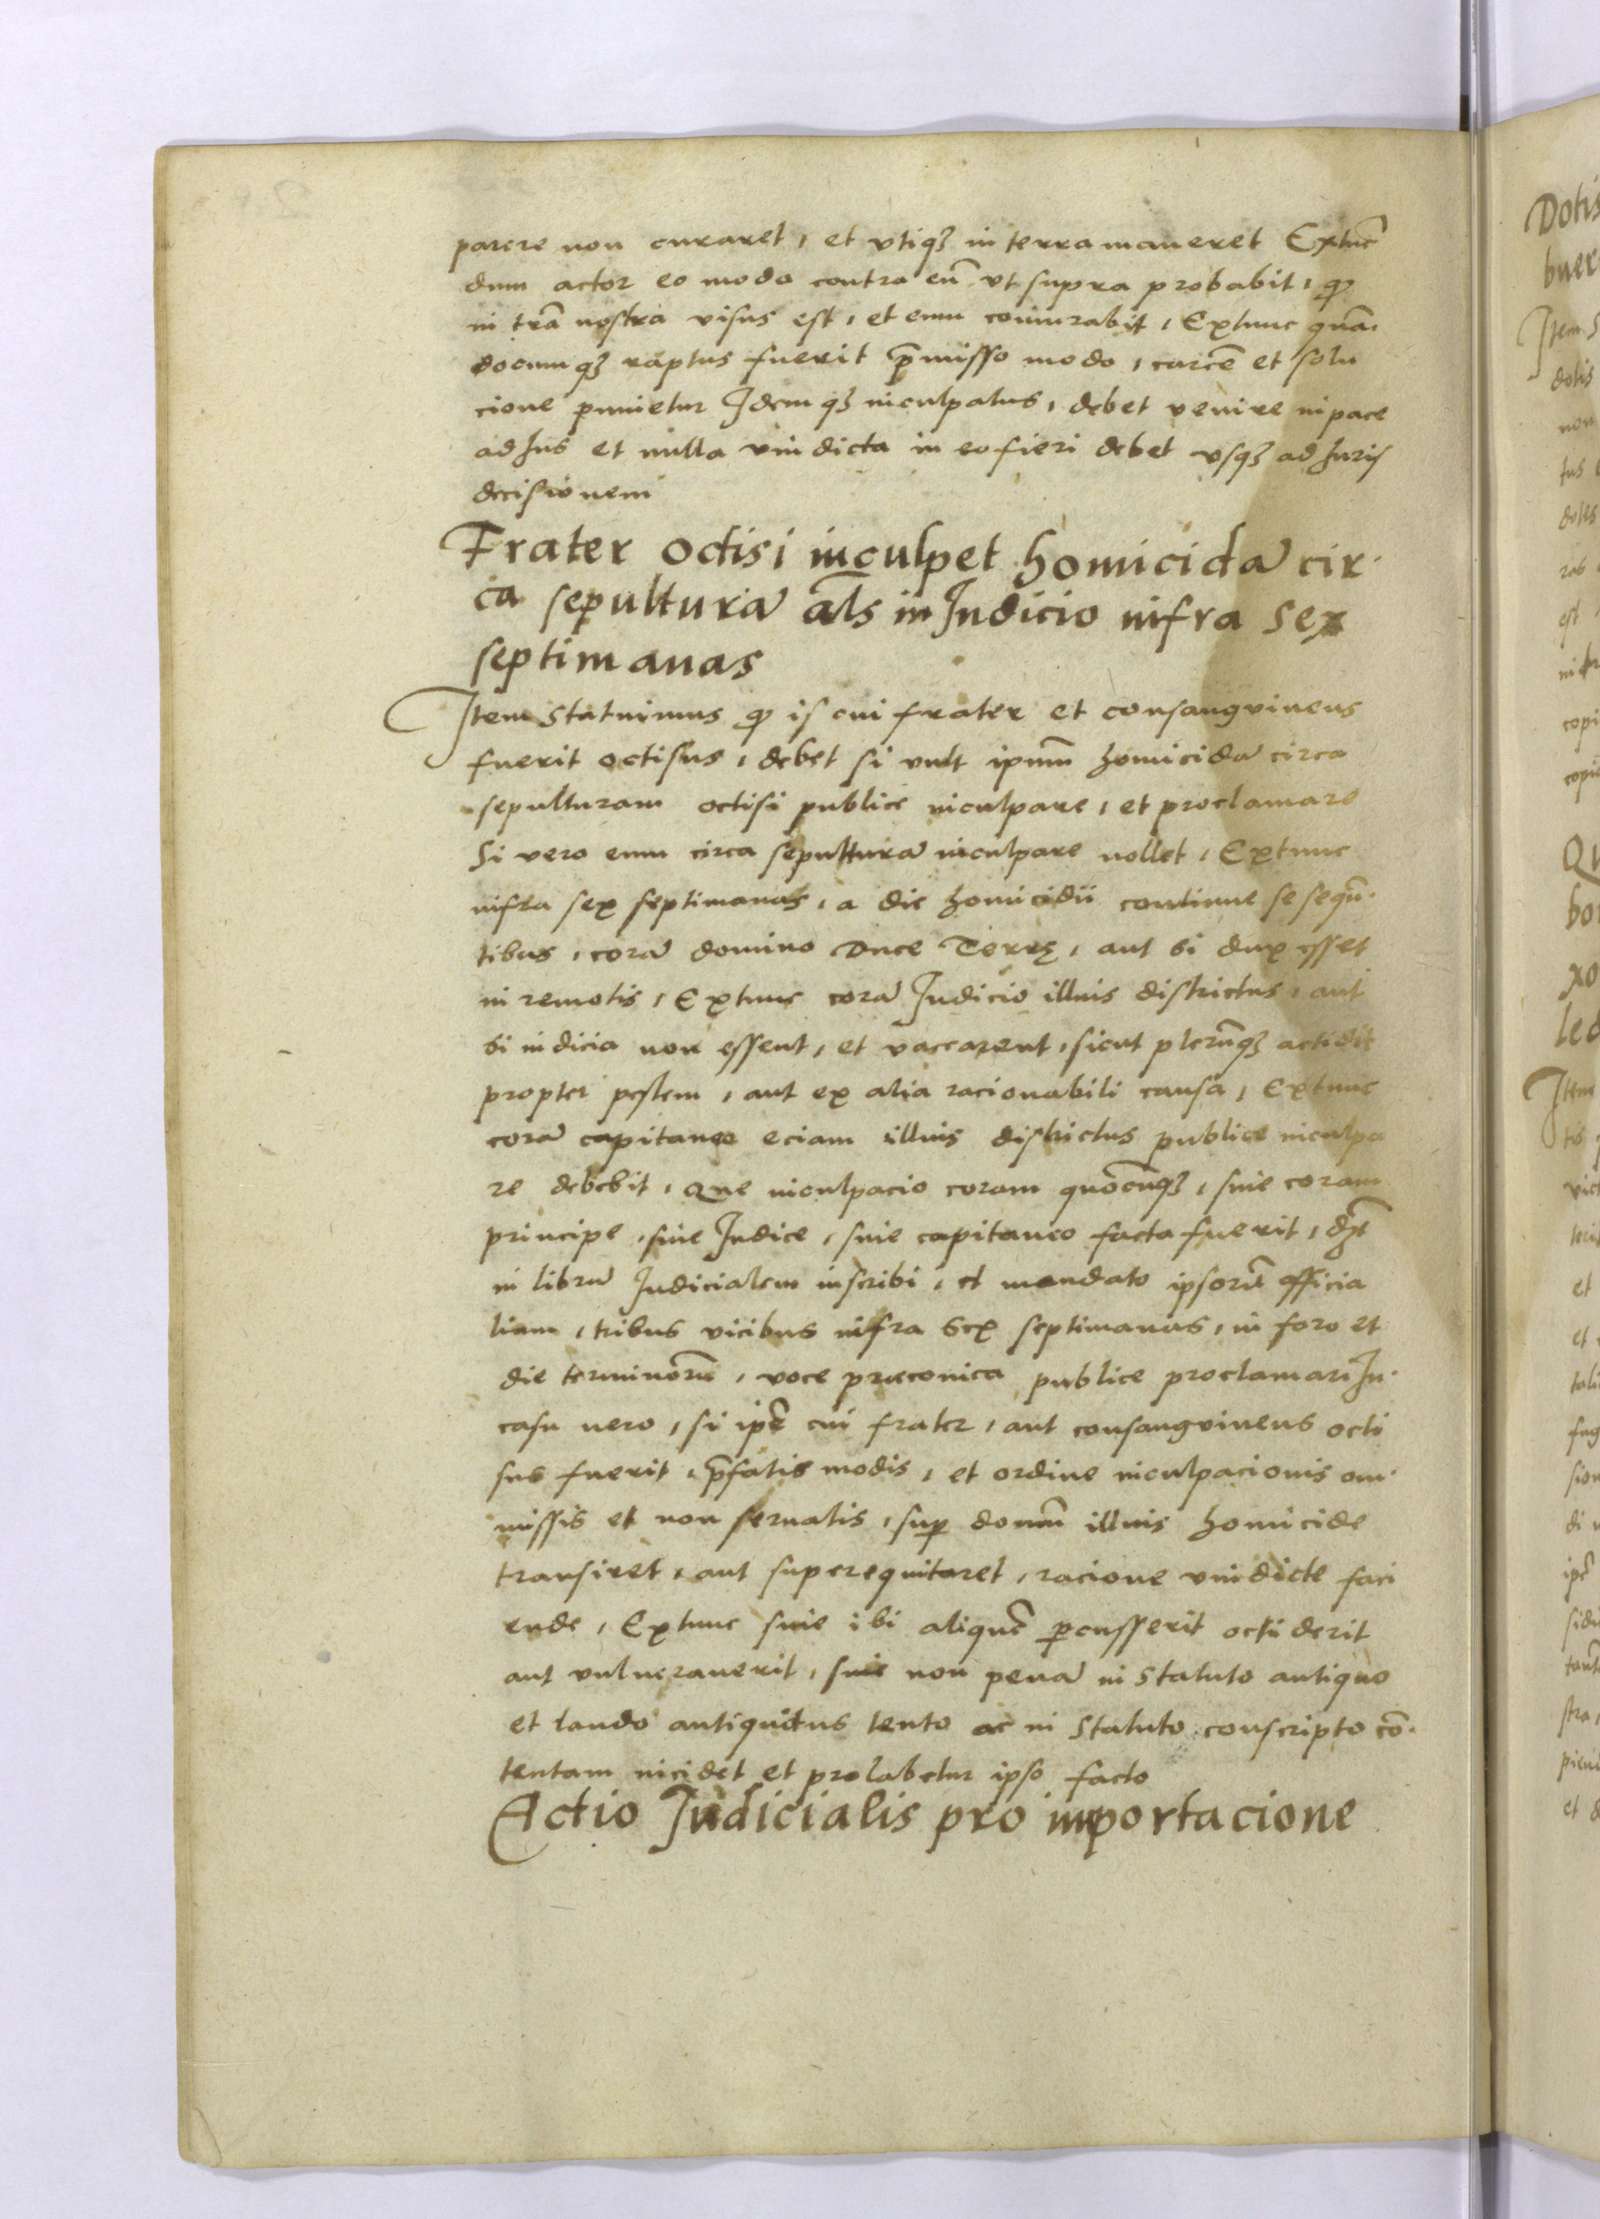 parere non curaret, et vtiqꝫ in terra maneret Extuc̄
dum actor eo modo contra eū vt supra probabit, ꝙ
in trā nostra visus est, et eum coniurabit, Extunc quan-
documqꝫ raptus fuerit p̄misso modo, carcē et solu
cione punietur Idemqꝫ inculpatus, debet venire in pace
ad Jus et nulla vindicta in eo fieri debet vsqꝫ ad Juris
decisionem
Frater octisi inculpet homicidā cir-
ca sepulturā al̄s in Judicio infra sex
septimanas
Item statuimus ꝙ is cui frater et consangvineus
fuerit octisus, debet si vult ipsum̄ homicidā circa
sepulturam octisi publice inculpare, et proclamare
Si vero eum circa sepulturā inculpare nollet, Extunc
infra sex septimanas, a die homicidii continue se sequē-
tibus, corā domino Duce Terrę, aut si dux esset
in remotis, Extunc corā Judicio illius districtus, aut
si iudicia non essent, et vaccarent, sicut plerūqꝫ actidit
propter pestem, aut ex alia racionabili causa, Extunc
corā capitaneo eciam illius districtus publice inculpa
re debebit, Que inculpacio coram quocūqꝫ, siue coram
principe, siue Judice, siue capitaneo facta fuerit, dꝫt
in librū Judicialem inscribi, et mandato ipsorū officia
lium, tribus vicibus infra sex septimanas, in foro et
die terminorū, voce præconica publice proclamari In-
casu vero, si ipē cui frater, aut consangvineus octi
sus fuerit, p̄fatis modis, et ordine inculpacionis om-
missis et non seruatis, suꝑ domū illius homicide
transiret, aut superequitaret, racione vindicte faci
ende, Extunc siue ibi aliquē ꝑcusserit octiderit
aut vulnerauerit, siue non penā in statuto antiquo
et laudo antiquitus tento ac in statuto conscripto cō-
tentam incidet et prolabetur ipso facto
Actio Judicialis pro importacione